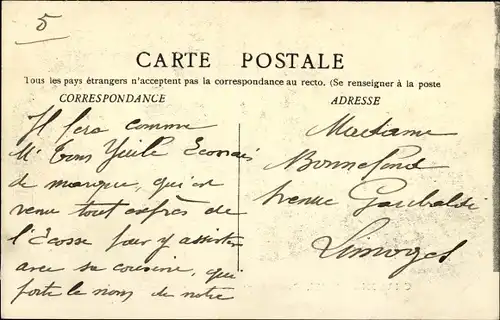 5
CARTE POSTALE
Tous les pays étrangers n'acceptent pas la correspondance au recto. (Se renseigner à la poste
CORRESPONDANCE
Il fera comme
Mr Tom Yuile Ecossais
de marque, qui est
venu tout exprès de
l'Ecosse pour y assister
avec sa cousine, qui
porte le nom de notre
ADRESSE
Madame
Bonnefond
Avenue Garibaldi
Limoges